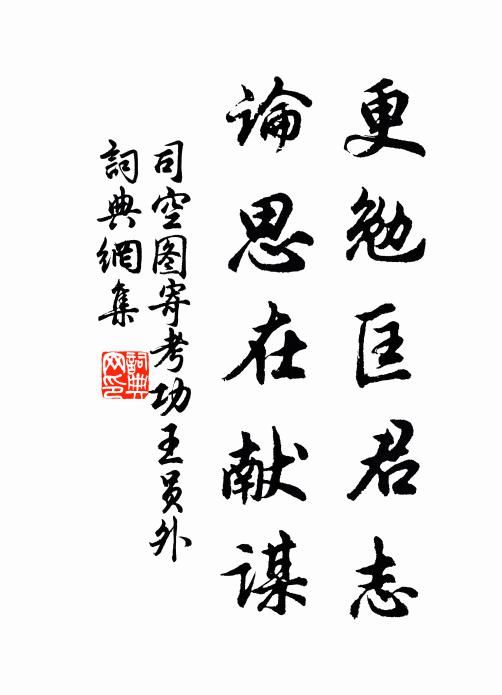 更勉匡君志
論思在献謀
司空图寄考功王员外
詞典網集
詞典网印